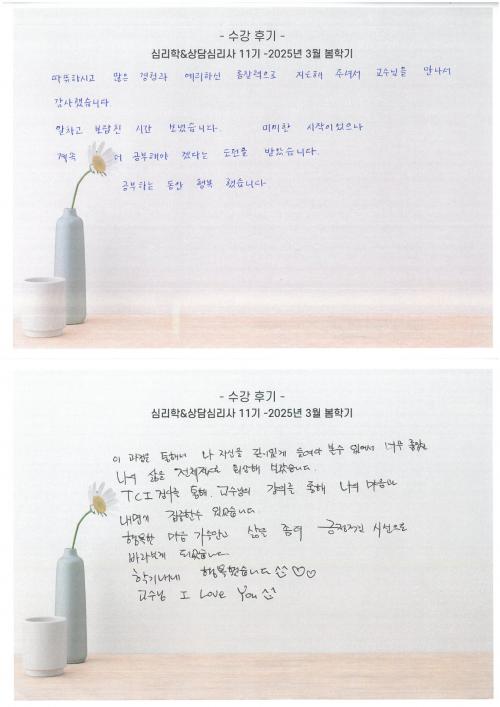 - 수강 후기 -
심리학&상담심리사 11기 -2025년 3월 봄학기
따뜻하시고 많은 경험과 예리하신 통찰력으로 지도해 주셔서 교수님을 만나서
감사했습니다.
알차고 보람찬 시간 보냈습니다. 미미한 시작이었으나
계속 더 공부해야 겠다는 도전을 받았습니다.
공부하는 동안 행복 했습니다
- 수강 후기 -
심리학&상담심리사 11기 -2025년 3월 봄학기
이 과정을 통해서 나 자신을 깊이있게 들여다 볼수 있어서 너무 좋았고
나의 삶을 전체적으로 회상해 보았습니다.
TCI 검사를 통해, 교수님의 강의를 통해 나의 마음과
내면에 집중할수 있었습니다.
행복한 마음 가득안고 삶을 좀더 긍정적인 시선으로
바라보게 되었습니다
학기내내 행복했습니다 ♡♡
교수님 I Love You